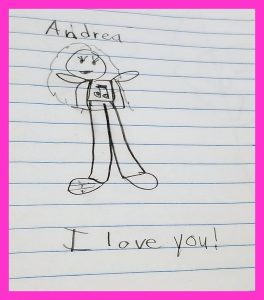 Andrea
I love you!